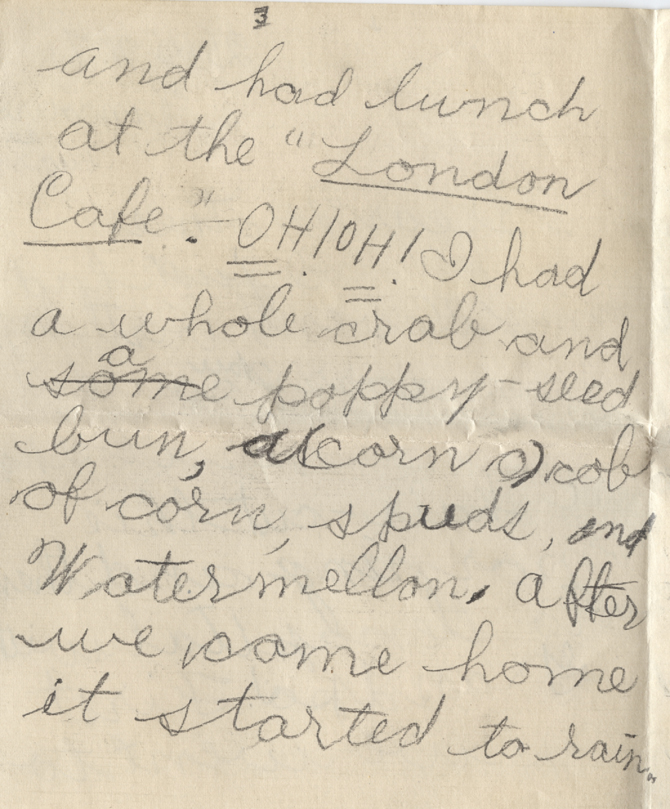 3
and had lunch
at the "London
Cafe". OH! OH! I had
a whole crab and
a
some poppy-seed
bun, a (corn o) cob
of corn, spuds, and
Watermellon, after
we came home
it started to rain.